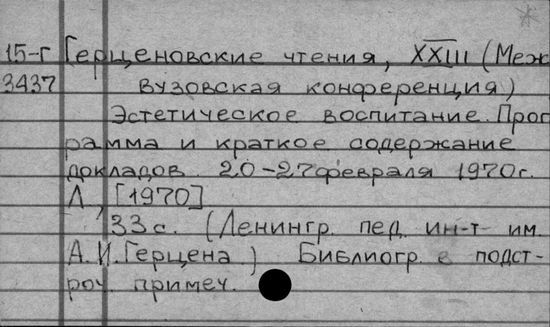 15-г Герценовские чтения, XXIII (Меж
3437 вузовская конференция)
Эстетическое воспитание. Прог
рамма и краткое содержание
докладов. 20-27 февраля 1970г.
Л., [1970]
33с. (Ленингр. пед. ин-т им.
А.И. Герцена.) Библиогр. в подст-
роч. примеч.